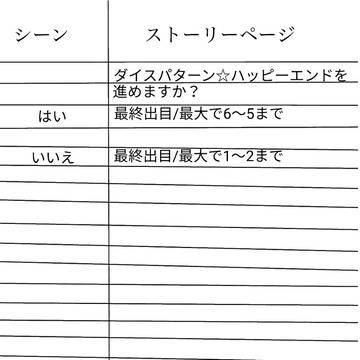 シーン ストーリーページ
ダイスパターン☆ハッピーエンドを
進めますか？
はい 最終出目/最大で6〜5まで
いいえ 最終出目/最大で1〜2まで